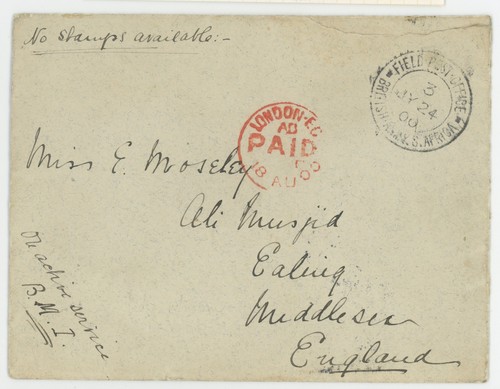 No stamps available:-
FIELD POST OFFICE
BRITISH ARMY S. AFRICA
3
JY 24
00
LONDON·E.C
AD
PAID
18 AU 00
Miss E. Moseley
Ali Musjid
Ealing
Middlesex
England
On active service
B.M.I.